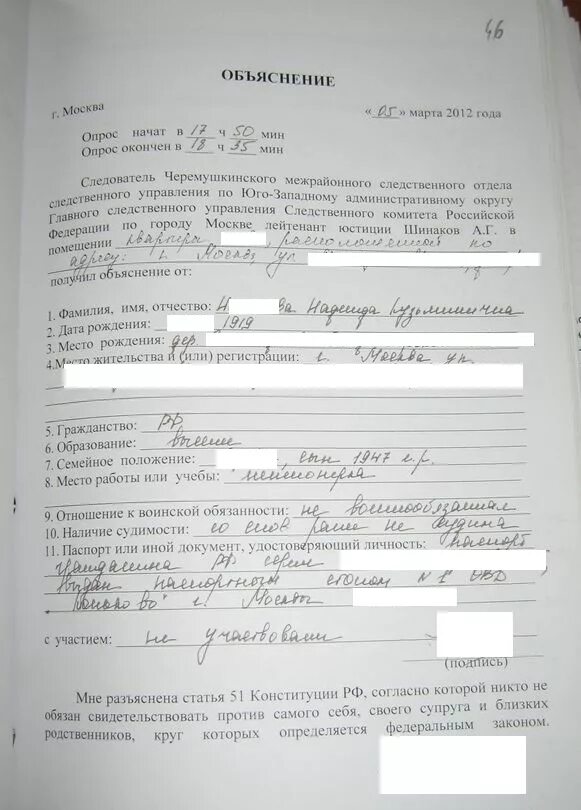 46
ОБЪЯСНЕНИЕ
г. Москва « 05 » марта 2012 года
Опрос начат в 17 ч 50 мин
Опрос окончен в 18 ч 35 мин
Следователь Черемушкинского межрайонного следственного отдела
следственного управления по Юго-Западному административному округу
Главного следственного управления Следственного комитета Российской
Федерации по городу Москве лейтенант юстиции Шинаков А.Г. в
помещении квартиры , расположенной по
адресу: г. Москва, ул.
получил объяснение от:
1. Фамилия, имя, отчество: Н ва Надежда Кузьминична
2. Дата рождения: 1919
3. Место рождения: дер.
4.Место жительства и (или) регистрации: г. Москва ул.
5. Гражданство: РФ
6. Образование: высшее
7. Семейное положение: , сын 1947 г.р.
8. Место работы или учебы: пенсионерка
9. Отношение к воинской обязанности: не военнообязанная
10. Наличие судимости: со слов ранее не судима
11. Паспорт или иной документ, удостоверяющий личность: паспорт
гражданина РФ серии
выдан паспортным столом № 1 ОВД
г. Москвы
с участием: не участвовали
(подпись)
Мне разъяснена статья 51 Конституции РФ, согласно которой никто не
обязан свидетельствовать против самого себя, своего супруга и близких
родственников, круг которых определяется федеральным законом.